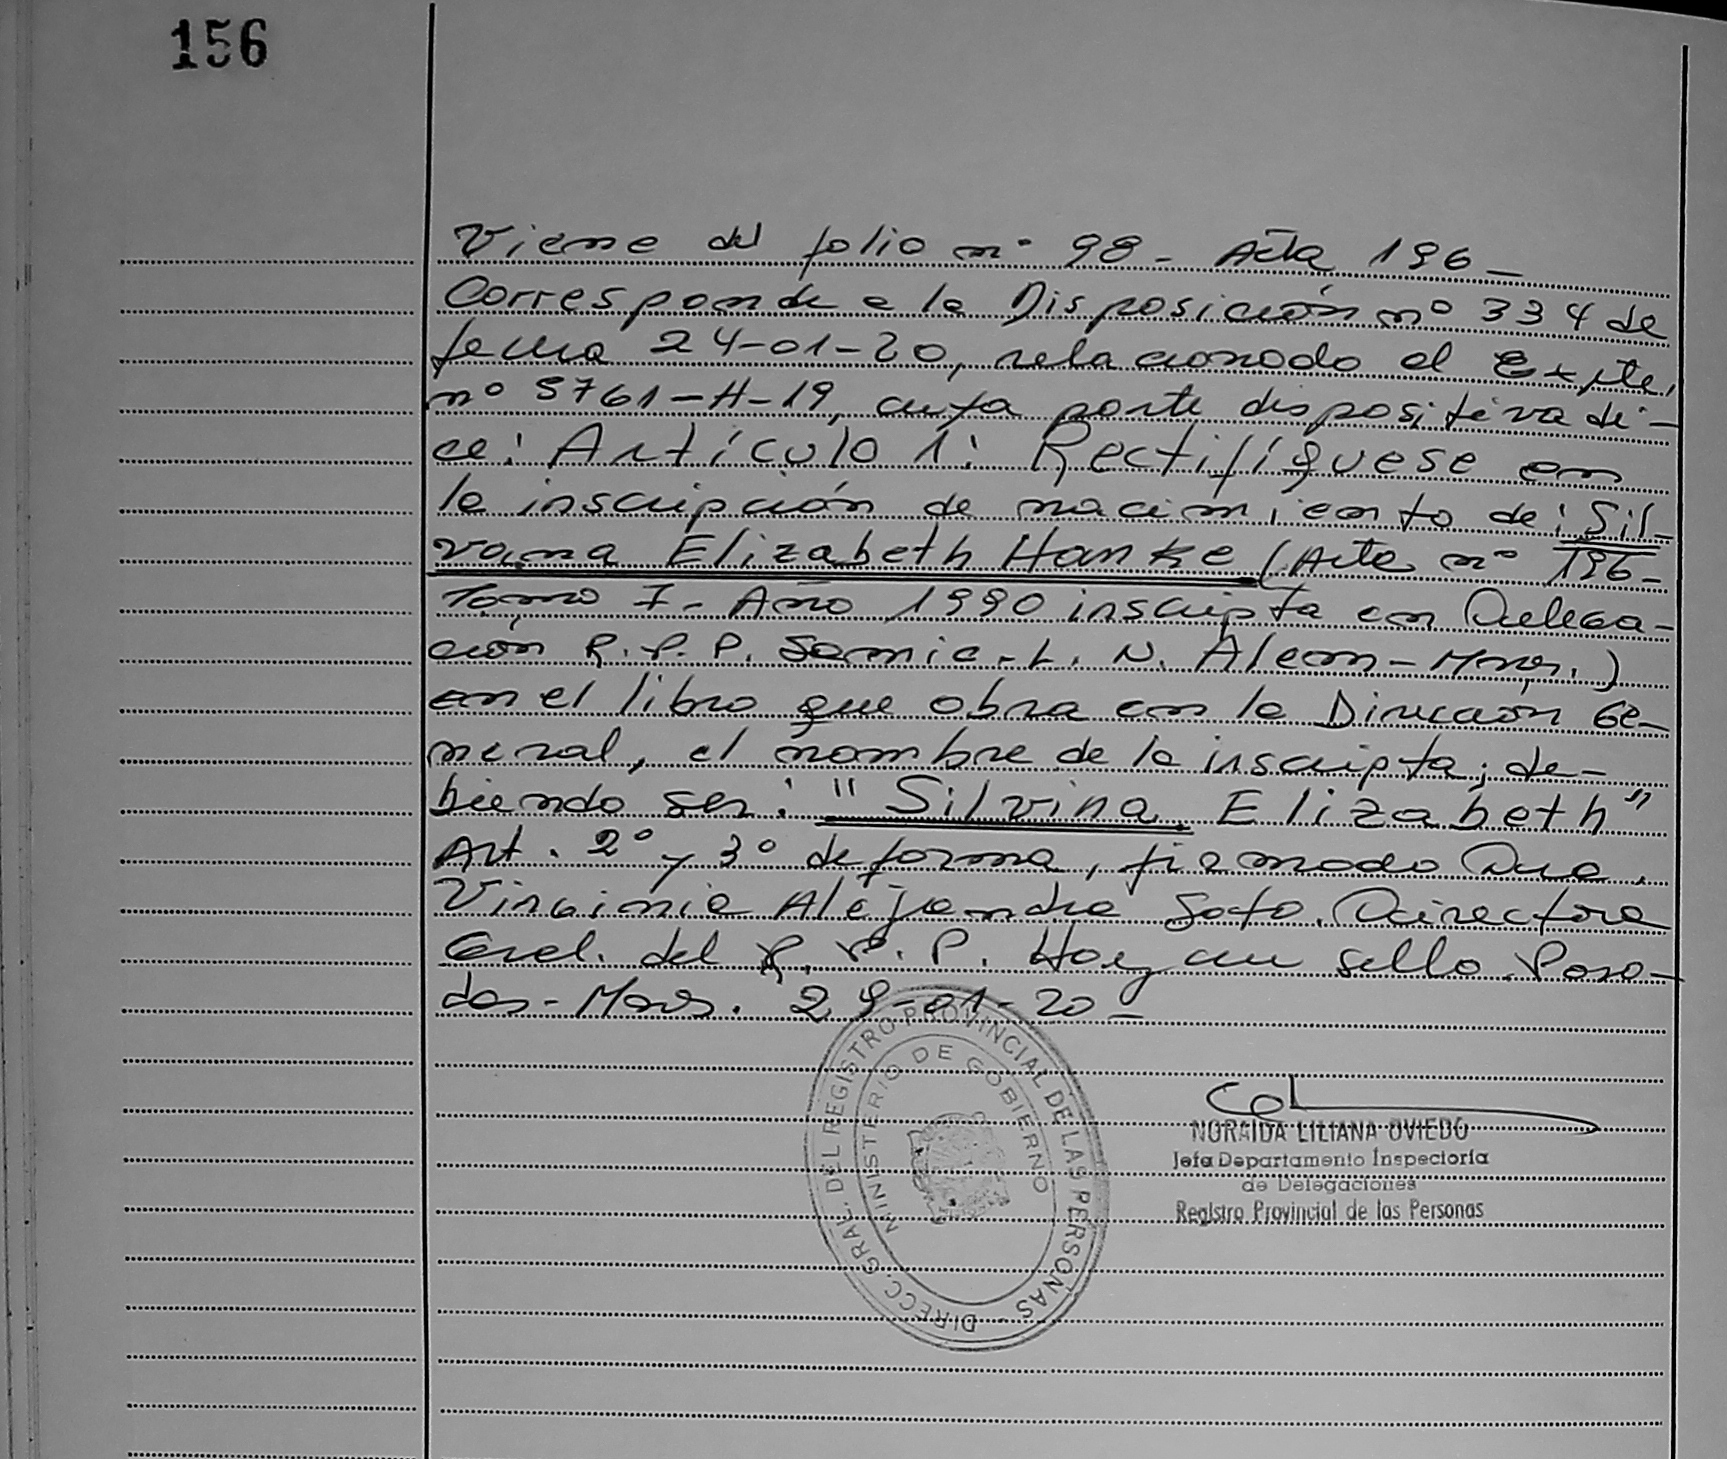 156
Viene del folio nº 98 - Acta 196 -
Corresponde a la Disposición nº 334 de
fecha 24-01-20, relacionado el Expte.
nº 5761-H-19, cuya parte dispositiva di-
ce: Artículo 1: Rectifíquese en
la inscripción de nacimiento de: Sil-
vana Elizabeth Hanke (Acta nº 196-
Tomo I - Año 1990 inscripta en Delega-
ción R.P.P. Samic - L. N. Alem - Mnes.)
en el libro que obra en la Dirección Ge-
neral, el nombre de la inscripta; de-
biendo ser: "Silvina Elizabeth"
Art. 2º y 3º de forma, firmado Dra.
Virginia Alejandra Soto. Directora
Gral. del R.P.P. Hay un sello. Posa-
das - Mnes. 29-01-20 -
DIRECC. GRAL. DEL REGISTRO PROVINCIAL DE LAS PERSONAS
MINISTERIO DE GOBIERNO
NORAIDA LILIANA OVIEDO
Jefa Departamento Inspectoría
de Delegaciones
Registro Provincial de las Personas